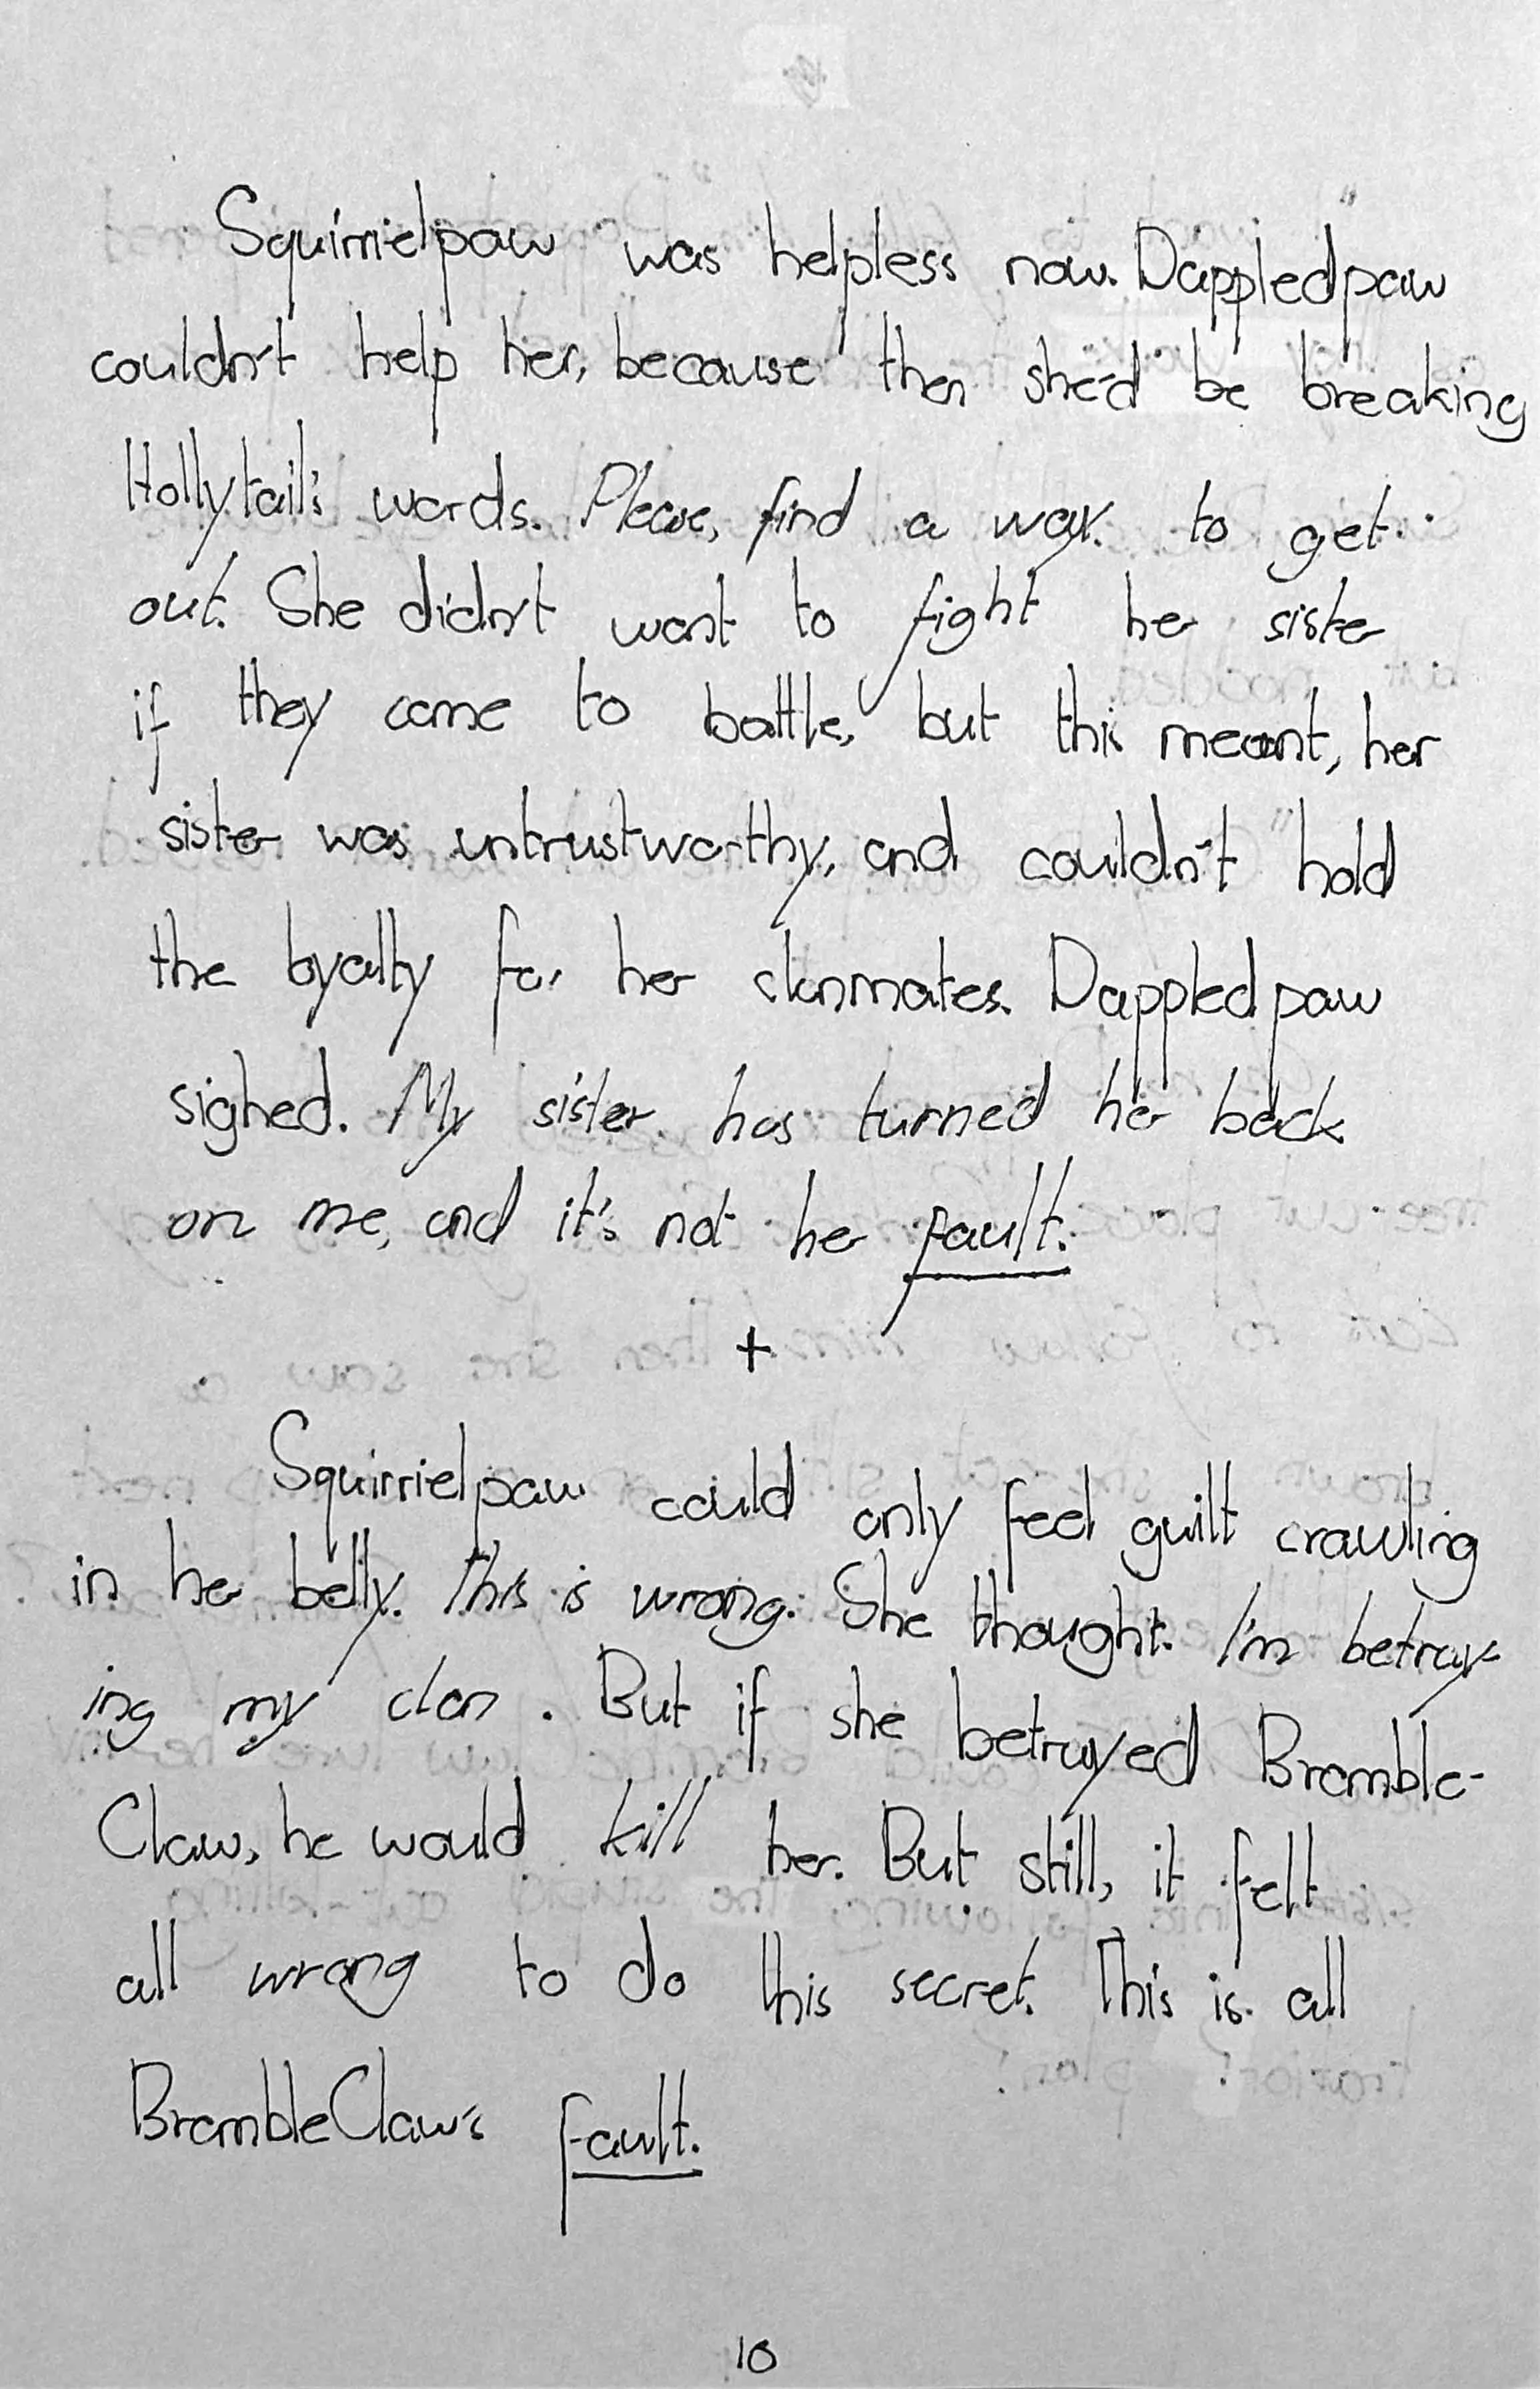 Squirrielpaw was helpless now. Dappledpaw
couldn't help her, because then she'd be breaking
Hollytail's words. Please, find a way to get
out. She didn't want to fight her sister
if they came to battle, but this meant, her
sister was untrustworthy, and couldn't hold
the loyalty for her clanmates. Dappledpaw
sighed. My sister has turned her back
on me, and it's not her fault.
+
Squirrielpaw could only feel guilt crawling
in her belly. This is wrong. She thought. I'm betray-
ing my clan. But if she betrayed Bramble-
Claw, he would kill her. But still, it felt
all wrong to do this secret. This is all
BrambleClaw's fault.
10